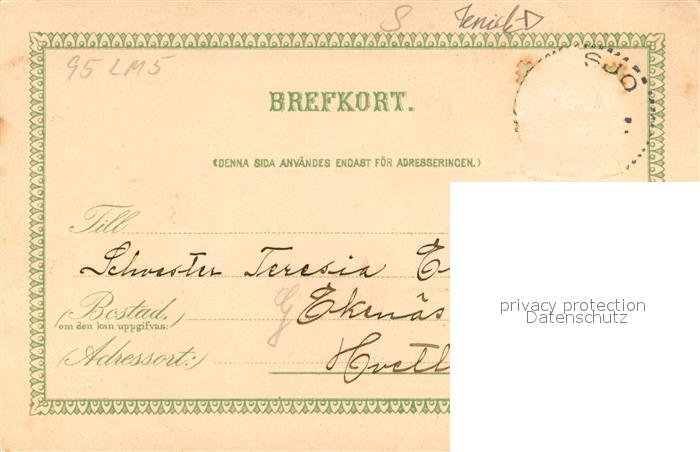 S
95 LM5
SJO
BREFKORT.
(DENNA SIDA ANVÄNDES ENDAST FÖR ADRESSERINGEN.)
Till
Schwester Teresia E
(Bostad,
om den kan uppgifvas:)
Ekenäs
(Adressort:)
Hvetl
privacy protection
Datenschutz